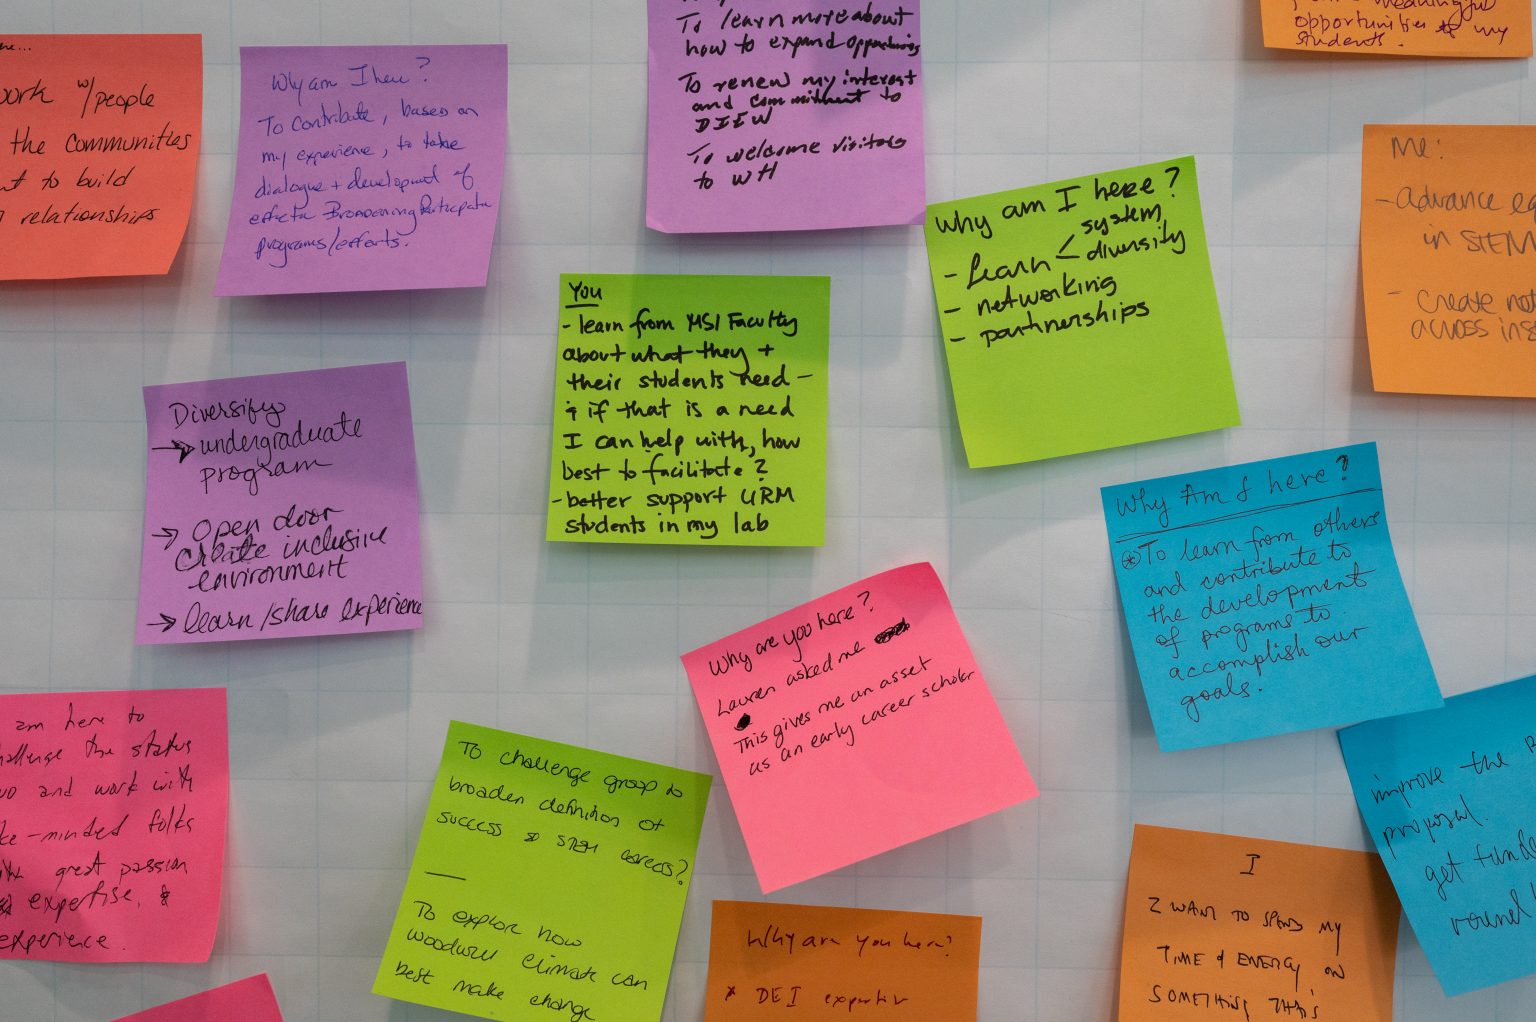 work w/people
the communities
to build
relationships
Why am I here?
To contribute, based on
my experience, to take
dialogue + development of
Broadening Participate
programs/efforts.
To learn more about
how to expand opportunities
To renew my interest
and commitment to
DIEW
To welcome visitors
to WH
opportunities to my
students.
Why am I here?
- Learn < system
diversity
- networking
- partnerships
Me:
- Advance
in STEM
- Create
across
You
- learn from MSI Faculty
about what they +
their students need -
& if that is a need
I can help with, how
best to facilitate?
- better support URM
students in my lab
Diversify
→ undergraduate
program
→ Open door
Create inclusive
environment
→ learn/share experience
Why Am I here?
* To learn from others
and contribute to
the development
of programs to
accomplish our
goals.
Why are you here?
Lauren asked me
This gives me an asset
as an early career scholar
am here to
the status
and work with
minded folks
great passion
expertise, &
experience.
To challenge group to
broaden definition of
success & STEM careers?
To explore how
climate can
best make change
improve the
proposal.
get
round
Why are you here?
* DEI
I
I WANT TO SPEND MY
TIME & ENERGY ON
SOMETHING THAT'S